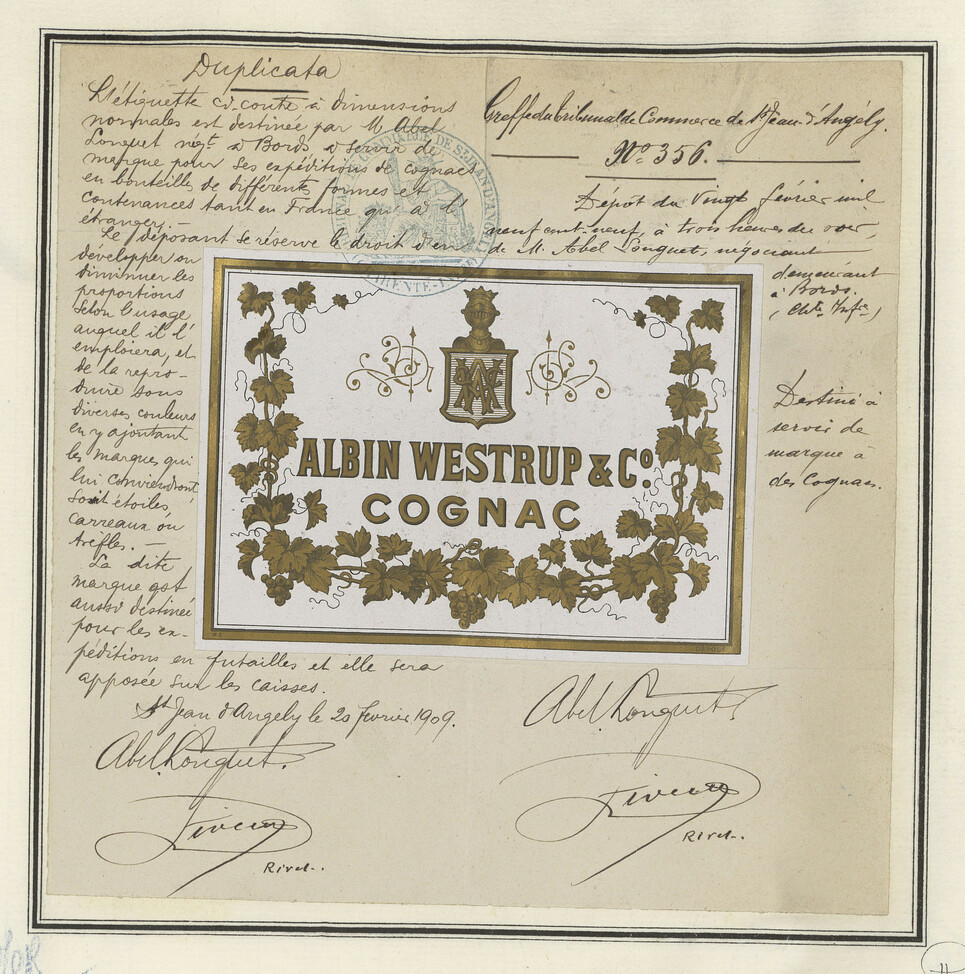 Duplicata
L'étiquette ci-contre à dimensions
normales est destinée par M. Abel
Longuet négt à Bords à servir de
marque pour ses expéditions de cognacs
en bouteilles de différentes formes et
contenances tant en France qu'à l'
étranger. —
Le déposant se réserve le droit d'en
développer ou
diminuer les
proportions
selon l'usage
auquel il l'
emploiera, et
de la repro-
duire sous
diverses couleurs
en y ajoutant
les marques qui
lui conviendront
soit étoiles,
carreaux ou
trèfles. —
La dite
marque est
aussi destinée
pour les ex-
péditions en futailles et elle sera
apposée sur les caisses.
St Jean d'Angely le 20 février 1909.
Abel Longuet
Rivet
Greffe du Tribunal de Commerce de St Jean d'Angély.
No 356.
Dépôt du Vingt février mil
neuf cent neuf, à trois heures du soir,
de M. Abel Longuet, négociant
demeurant
à Bords.
(Chte Infre)
Destiné à
servir de
marque à
des Cognacs.
ALBIN WESTRUP & Co.
COGNAC
DÉPOSÉ
Abel Longuet
Rivet
11